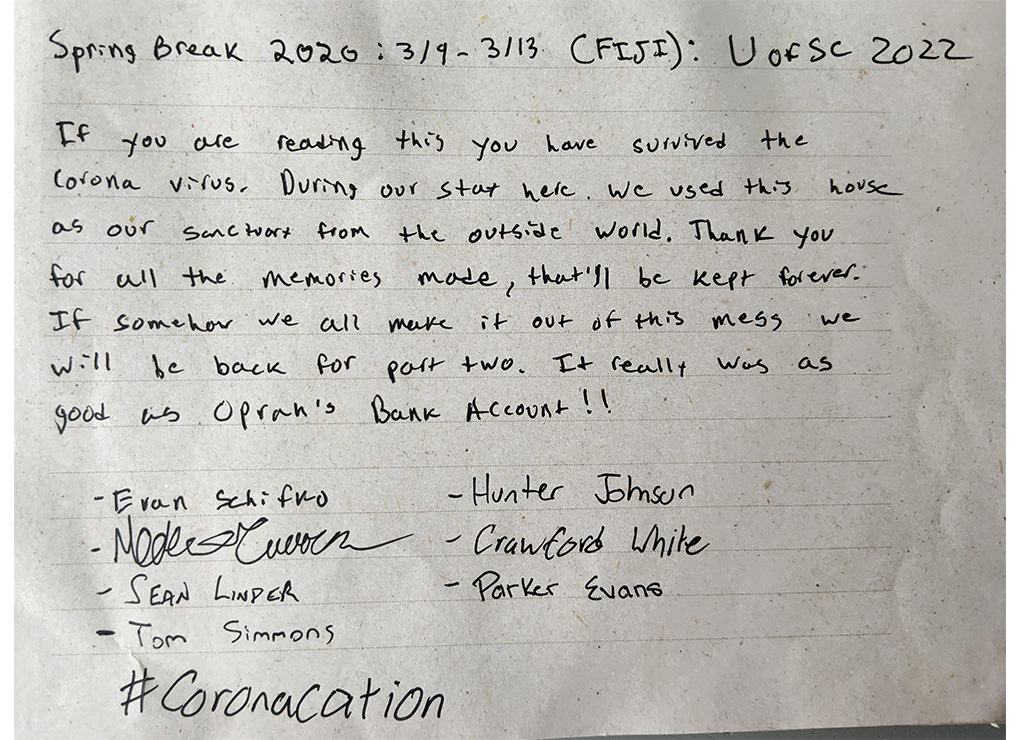 Spring Break 2020 : 3/9 - 3/13 (FIJI): U of SC 2022
If you are reading this you have survived the
Corona virus. During our stay here. we used this house
as our sanctuary from the outside world. Thank you
for all the memories made, that'll be kept forever.
If somehow we all make it out of this mess we
will be back for part two. It really was as
good as Oprah's Bank Account!!
- Evan Schifko
- Hunter Johnson
-
- Crawford White
- SEAN LINDER
- Parker Evans
- Tom Simmons
#Coronacation